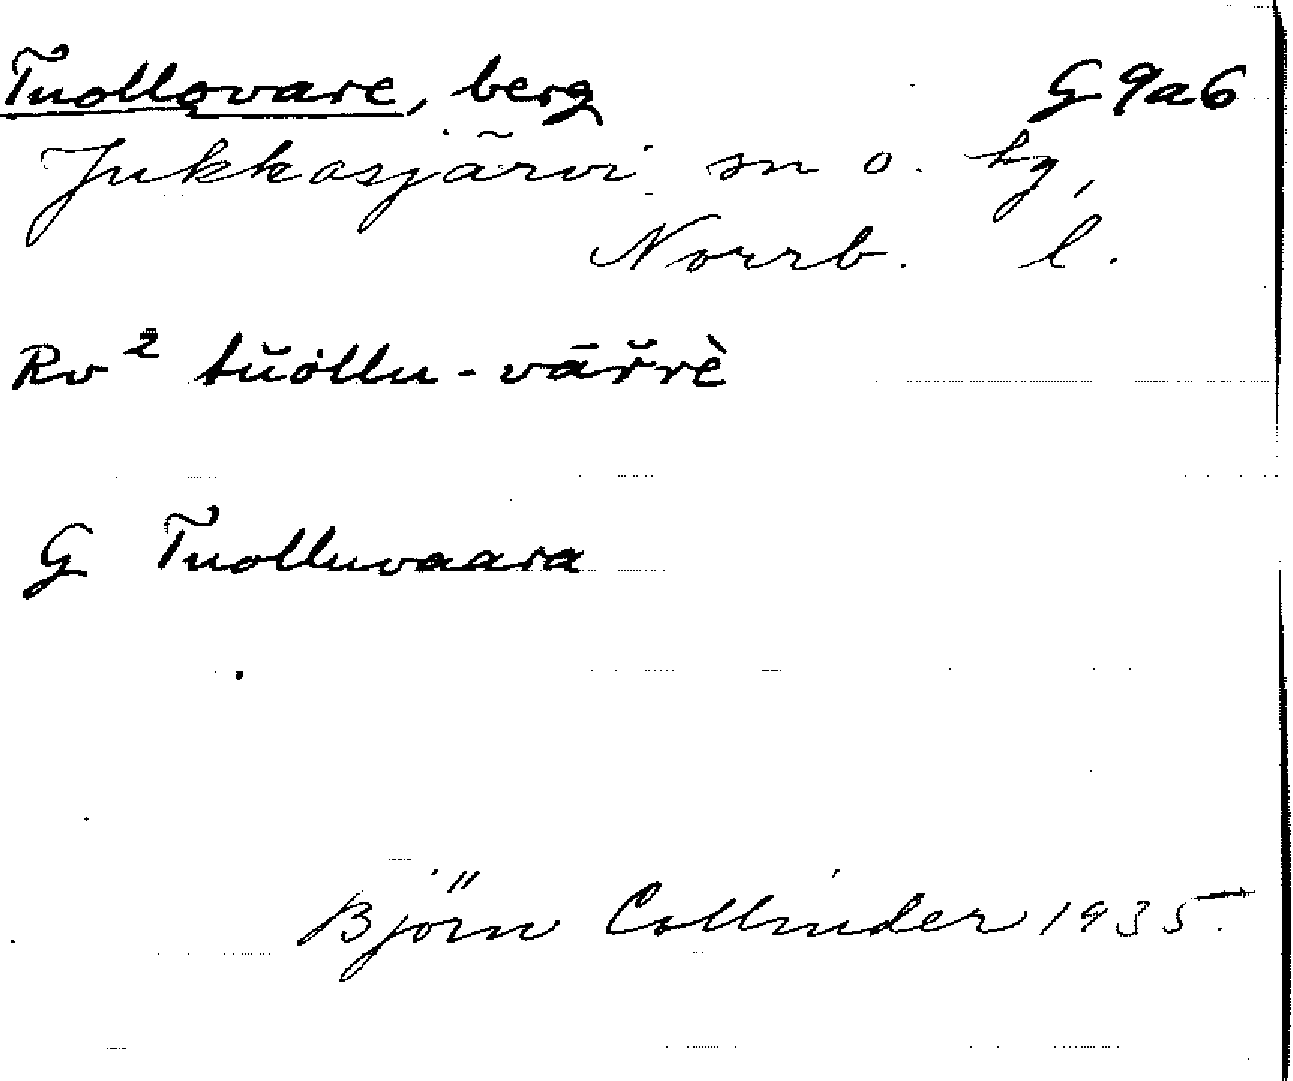 Tuollovare, berg G 9a6
Jukkasjärvi sn o. hg,
Norrb. l.
Rv² tŭollu - vāřrè
G Tuolluvaara
Björn Collinder 1935.